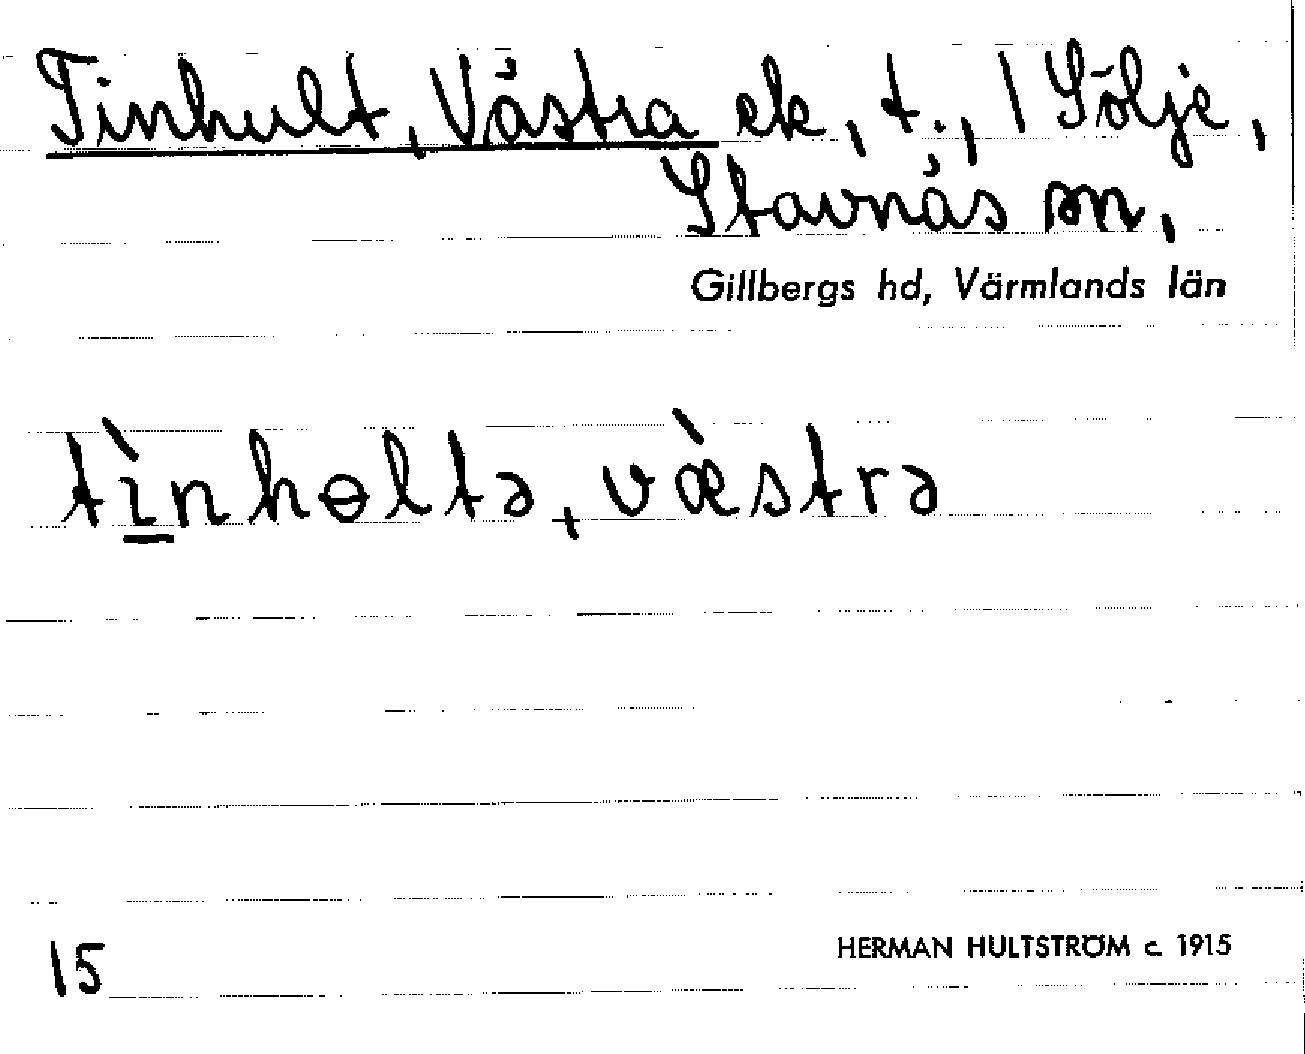 Tinhult, Västra ek, t., 1 Sölje,
Stavnäs sn,
Gillbergs hd, Värmlands län
tìnhɵltə, væ̀strə
15
HERMAN HULTSTRÖM c. 1915